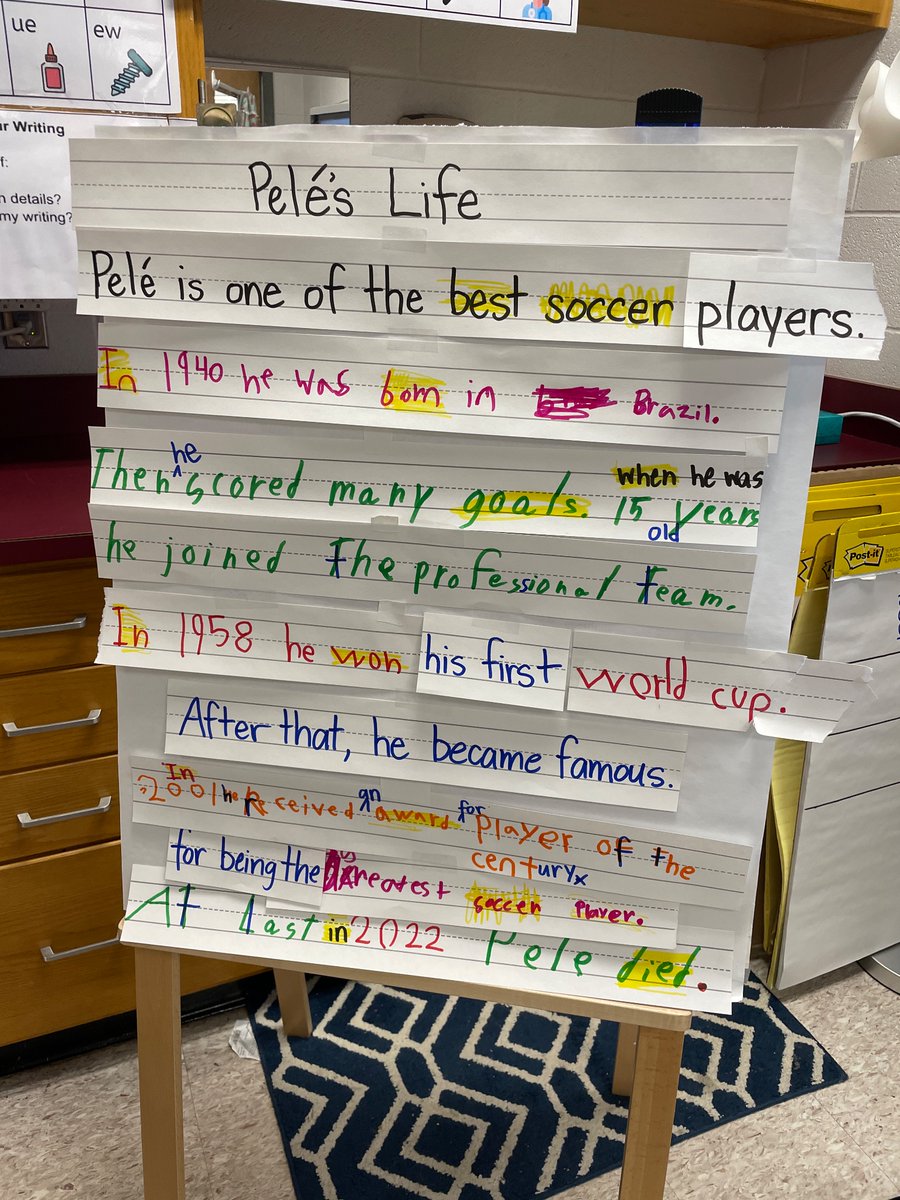 ue ew
r Writing
f:
n details?
my writing?
Pelé's Life
Pelé is one of the best soccer players.
In 1940 he was born in Brazil.
Then he scored many goals. when he was
15 years old
he joined the professional team.
In 1958 he won his first world cup.
After that, he became famous.
In 2001 he received an award for player of the
century
for being the greatest soccer player.
At Last in 2022 Pele died.
Post-it